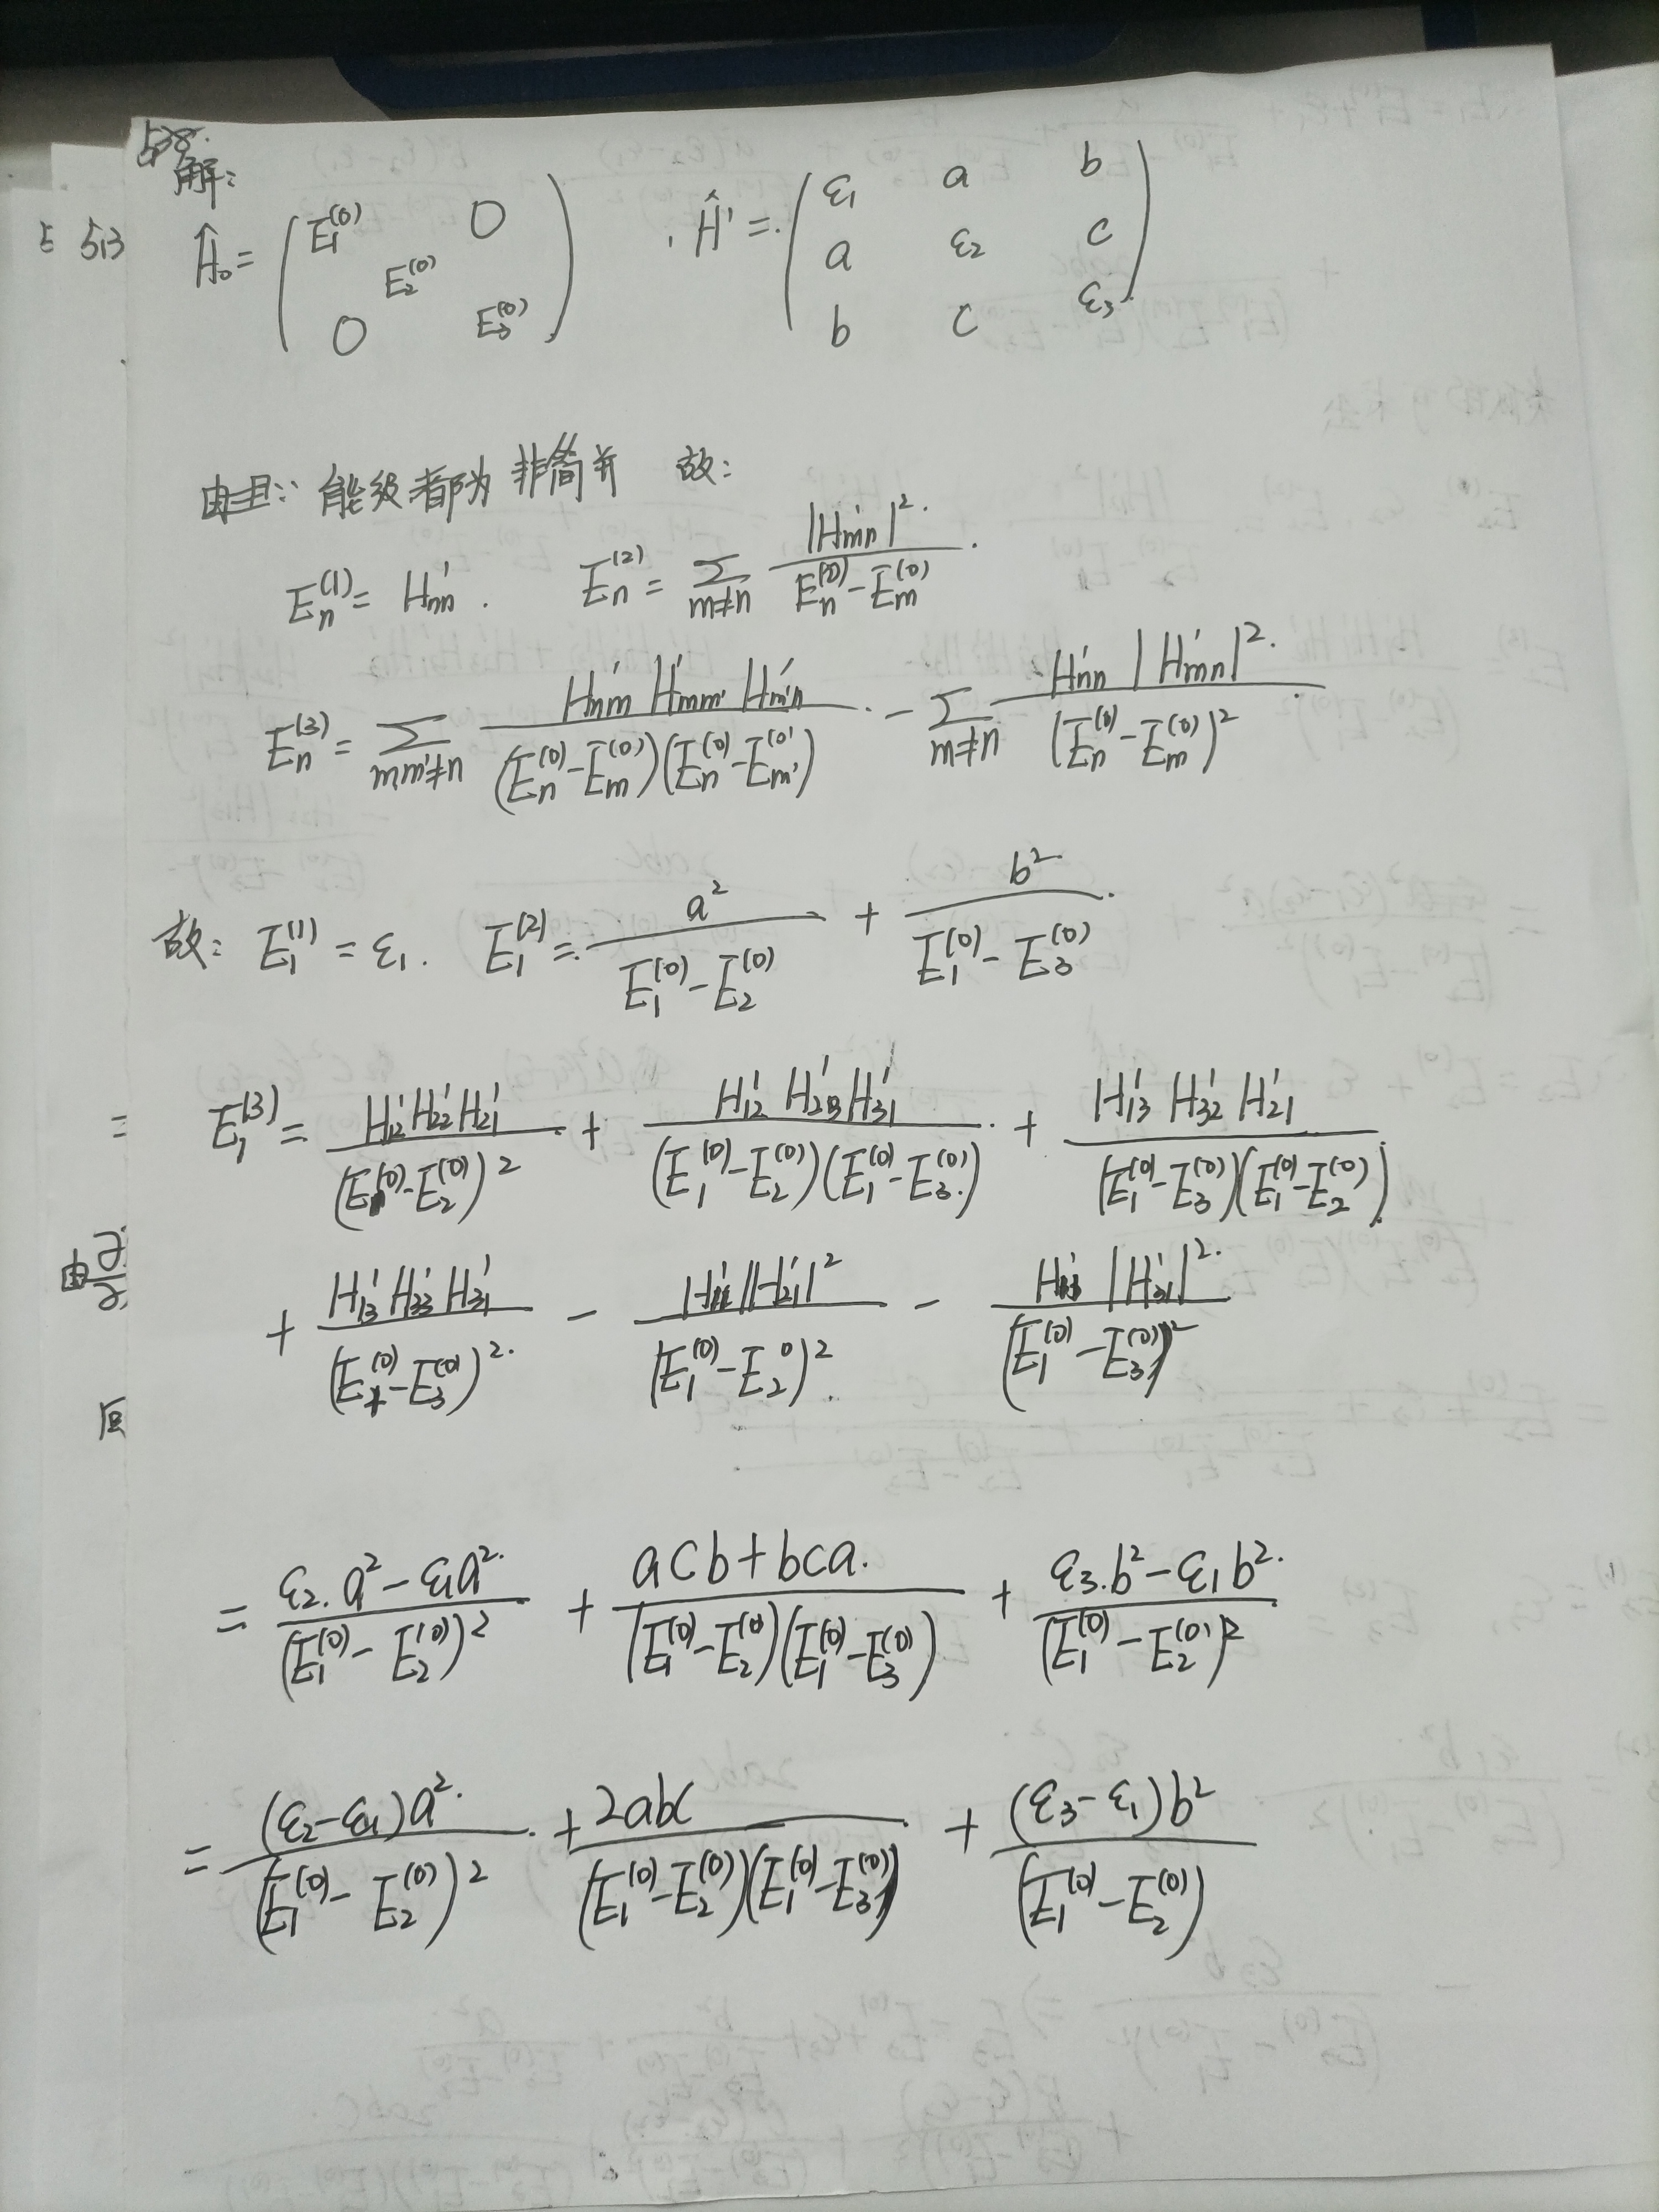 解:
5.13
Ĥ₀ = ( E₁⁽⁰⁾ 0 E₂⁽⁰⁾ 0 E₃⁽⁰⁾ ) , Ĥ' = ( ε₁ a b a ε₂ c b c ε₃ )
能级都为非简并 故:
Eₙ⁽¹⁾ = H'ₙₙ . Eₙ⁽²⁾ = Σ_{m≠n} |H'ₘₙ|² / (Eₙ⁽⁰⁾ - Eₘ⁽⁰⁾) .
Eₙ⁽³⁾ = Σ_{mm'≠n} H'ₙₘ H'ₘₘ' H'ₘ'ₙ / (Eₙ⁽⁰⁾ - Eₘ⁽⁰⁾)(Eₙ⁽⁰⁾ - Eₘ'⁽⁰⁾) - Σ_{m≠n} H'ₙₙ |H'ₘₙ|² / (Eₙ⁽⁰⁾ - Eₘ⁽⁰⁾)²
故: E₁⁽¹⁾ = ε₁ . E₁⁽²⁾ = a² / (E₁⁽⁰⁾ - E₂⁽⁰⁾) + b² / (E₁⁽⁰⁾ - E₃⁽⁰⁾)
E₁⁽³⁾ = H'₁₂ H'₂₂ H'₂₁ / (E₁⁽⁰⁾ - E₂⁽⁰⁾)² + H'₁₂ H'₂₃ H'₃₁ / (E₁⁽⁰⁾ - E₂⁽⁰⁾)(E₁⁽⁰⁾ - E₃⁽⁰⁾) + H'₁₃ H'₃₂ H'₂₁ / (E₁⁽⁰⁾ - E₃⁽⁰⁾)(E₁⁽⁰⁾ - E₂⁽⁰⁾)
+ H'₁₃ H'₃₃ H'₃₁ / (E₁⁽⁰⁾ - E₃⁽⁰⁾)² - H'₁₁ |H'₂₁|² / (E₁⁽⁰⁾ - E₂⁰)² - |H'₃₁|² / (E₁⁽⁰⁾ - E₃⁽⁰⁾)²
= (ε₂. a² - ε₁a²) / (E₁⁽⁰⁾ - E₂⁽⁰⁾)² + (acb + bca) / (E₁⁽⁰⁾ - E₂⁽⁰⁾)(E₁⁽⁰⁾ - E₃⁽⁰⁾) + (ε₃.b² - ε₁b²) / (E₁⁽⁰⁾ - E₂⁽⁰⁾)²
= (ε₂ - ε₁)a² / (E₁⁽⁰⁾ - E₂⁽⁰⁾)² + 2abc / (E₁⁽⁰⁾ - E₂⁽⁰⁾)(E₁⁽⁰⁾ - E₃⁽⁰⁾) + (ε₃ - ε₁)b² / (E₁⁽⁰⁾ - E₂⁽⁰⁾)